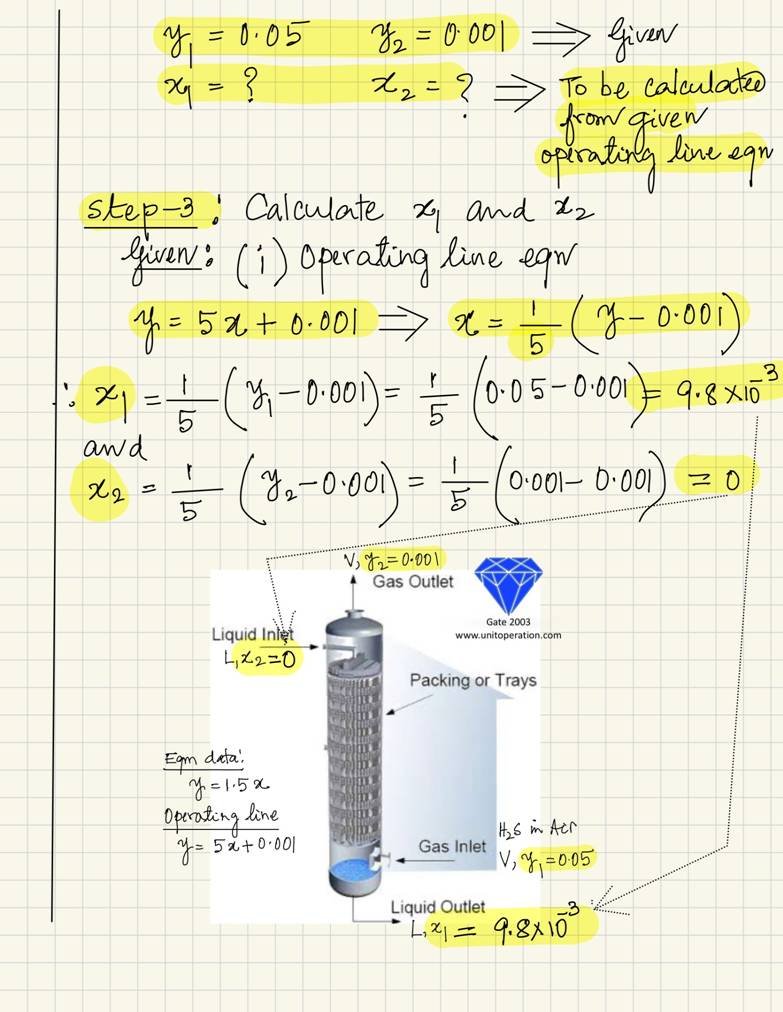 y₁ = 0.05 y₂ = 0.001 ⟹ Given
x₁ = ? x₂ = ? ⟹ To be calculated
from given
operating line eqn
Step-3: Calculate x₁ and x₂
Given: (i) Operating line eqn
y = 5x + 0.001 ⟹ x = 1/5 (y - 0.001)
∴ x₁ = 1/5 (y₁ - 0.001) = 1/5 (0.05 - 0.001) = 9.8 × 10⁻³
and
x₂ = 1/5 (y₂ - 0.001) = 1/5 (0.001 - 0.001) = 0
V, y₂ = 0.001
Gas Outlet
Gate 2003
www.unitoperation.com
Liquid Inlet
L, x₂ = 0
Packing or Trays
Eqm data:
y = 1.5x
Operating line
y = 5x + 0.001
H₂S in Air
Gas Inlet
V, y₁ = 0.05
Liquid Outlet
L, x₁ = 9.8 × 10⁻³